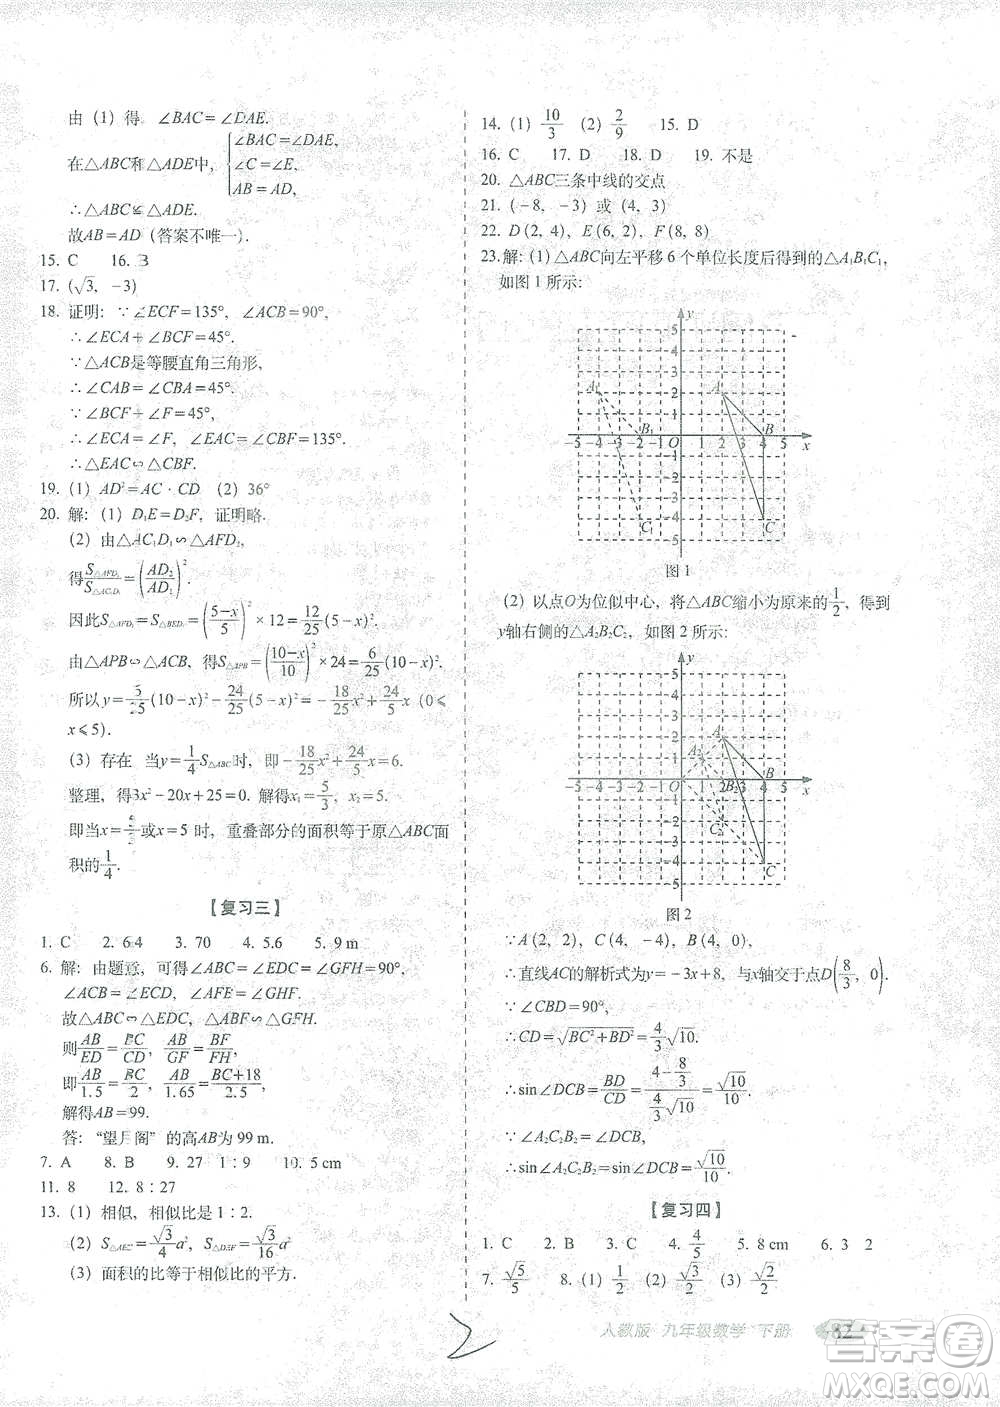 由（1）得 ∠BAC=∠DAE.
在△ABC和△ADE中，{∠BAC=∠DAE, ∠C=∠E, AB=AD,
∴△ABC≌△ADE.
故AB=AD（答案不唯一）.
15. C 16. B
17. (√3，-3)
18. 证明：∵∠ECF=135°，∠ACB=90°，
∴∠ECA+∠BCF=45°.
∵△ACB是等腰直角三角形，
∴∠CAB=∠CBA=45°.
∵∠BCF+∠F=45°，
∴∠ECA=∠F，∠EAC=∠CBF=135°.
∴△ECA∽△CBF.
19.（1）AD²=AC·CD （2）36°
20. 解：（1）D₁E=D₂F，证明略.
（2）由△AC₁D₁∽△AFD₂，
得 S△AFD₂/S△AC₁D₁=(AD₂/AD₁)².
因此S△AFD₂=S△BED₁=((5-x)/5)²×12=12/25(5-x)².
由△APB∽△ACB，得S△APB=((10-x)/10)²×24=6/25(10-x)².
所以y=6/25(10-x)²-24/25(5-x)²=-18/25x²+24/5x（0≤
x≤5）.
（3）存在 当y=1/4S△ABC时，即-18/25x²+24/5x=6.
整理，得3x²-20x+25=0. 解得x₁=5/3，x₂=5.
即当x=5/3或x=5 时，重叠部分的面积等于原△ABC面
积的1/4.
【复习三】
1. C 2. 64 3. 70 4. 5.6 5. 9 m
6. 解：由题意，可得∠ABC=∠EDC=∠GFH=90°，
∠ACB=∠ECD，∠AFB=∠GHF.
故△ABC∽△EDC，△ABF∽△GFH.
则AB/ED=BC/CD，AB/GF=BF/FH，
即AB/1.5=BC/2，AB/1.65=(BC+18)/2.5，
解得AB=99.
答：“望月阁”的高AB为 99 m.
7. A 8. B 9. 27 1∶9 10. 5 cm
11. 8 12. 8∶27
13.（1）相似，相似比是 1∶2.
（2）S△AEC=√3/4a²，S△DEF=√3/16a²
（3）面积的比等于相似比的平方.
14.（1）10/3 （2）2/9 15. D
16. C 17. D 18. D 19. 不是
20. △ABC三条中线的交点
21.（-8，-3）或（4，3）
22. D(2，4)，E(6，2)，F(8，8)
23.解：（1）△ABC向左平移 6 个单位长度后得到的△A₁B₁C₁，
如图 1 所示：
y 5 4 3 2 1 A₁ A B₁ B -5 -4 -3 -2 -1 O 1 2 3 4 5 x -1 -2 -3 -4 -5 C₁ C
图 1
（2）以点O为位似中心，将△ABC缩小为原来的1/2，得到
y轴右侧的△A₂B₂C₂，如图 2 所示：
y 5 4 3 2 1 A A₂ B -5 -4 -3 -2 -1 O 1 2 B₂ 3 4 5 x -1 -2 -3 -4 -5 C₂ C
图 2
∵A(2，2)，C(4，-4)，B(4，0)，
∴直线AC的解析式为y=-3x+8，与x轴交于点D(8/3，0).
∵∠CBD=90°，
∴CD=√(BC²+BD²)=4/3√10.
∴sin∠DCB=BD/CD=(4-8/3)/(4/3√10)=√10/10.
∵∠A₂C₂B₂=∠ACB，
∴sin∠A₂C₂B₂=sin∠DCB=√10/10.
【复习四】
1. C 2. B 3. C 4. 4/5 5. 8 cm 6. 3 2
7. √5/5 8.（1）1/2 （2）√3/2 （3）√2/2
2
人教版 九年级数学 下册 62
答案圈
MXQE.COM